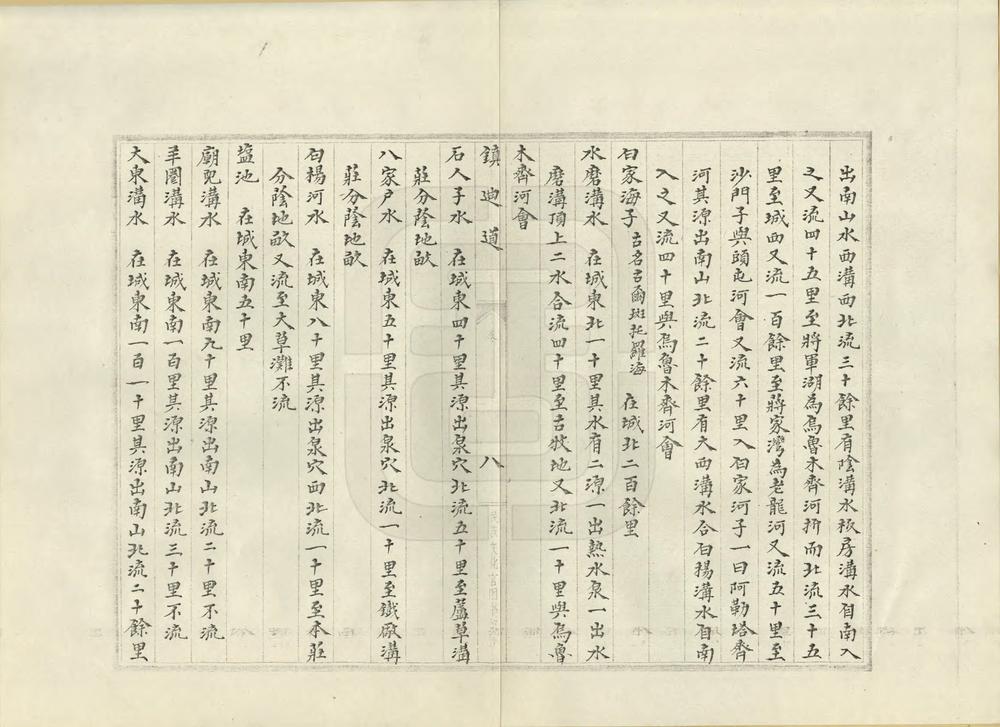 出南山水西溝西北流三十餘里有陰溝水板房溝水自南入
之又流四十五里至將軍湖為烏魯木齊河折而北流三十五
里至城西又流一百餘里至蔣家灣為老龍河又流五十里至
沙門子與頭屯河會又流六十里入白家河子一曰阿勒塔齊
河其源出南山北流二十餘里有大西溝水合白楊溝水自南
入之又流四十里與烏魯木齊河會
白家海子古名古爾班托羅海 在城北二百餘里
水磨溝水 在城東北一十里其水有二源一出熱水泉一出水
磨溝頂上二水合流四十里至古牧地又北流一十里與烏魯
木齊河會
鎮迪道 八
石人子水 在城東四十里其源出泉穴北流五十里至蘆草溝
莊分陰地畝
八家戶水 在城東五十里其源出泉穴北流一十里至鐵廠溝
莊分陰地畝
白楊河水 在城東八十里其源出泉穴西北流一十里至本莊
分陰地畝又流至大草灘不流
塩池 在城東南五十里
廟兒溝水 在城東南九十里其源出南山北流二十里不流
羊圈溝水 在城東南一百里其源出南山北流三十里不流
大東溝水 在城東南一百一十里其源出南山北流二十餘里